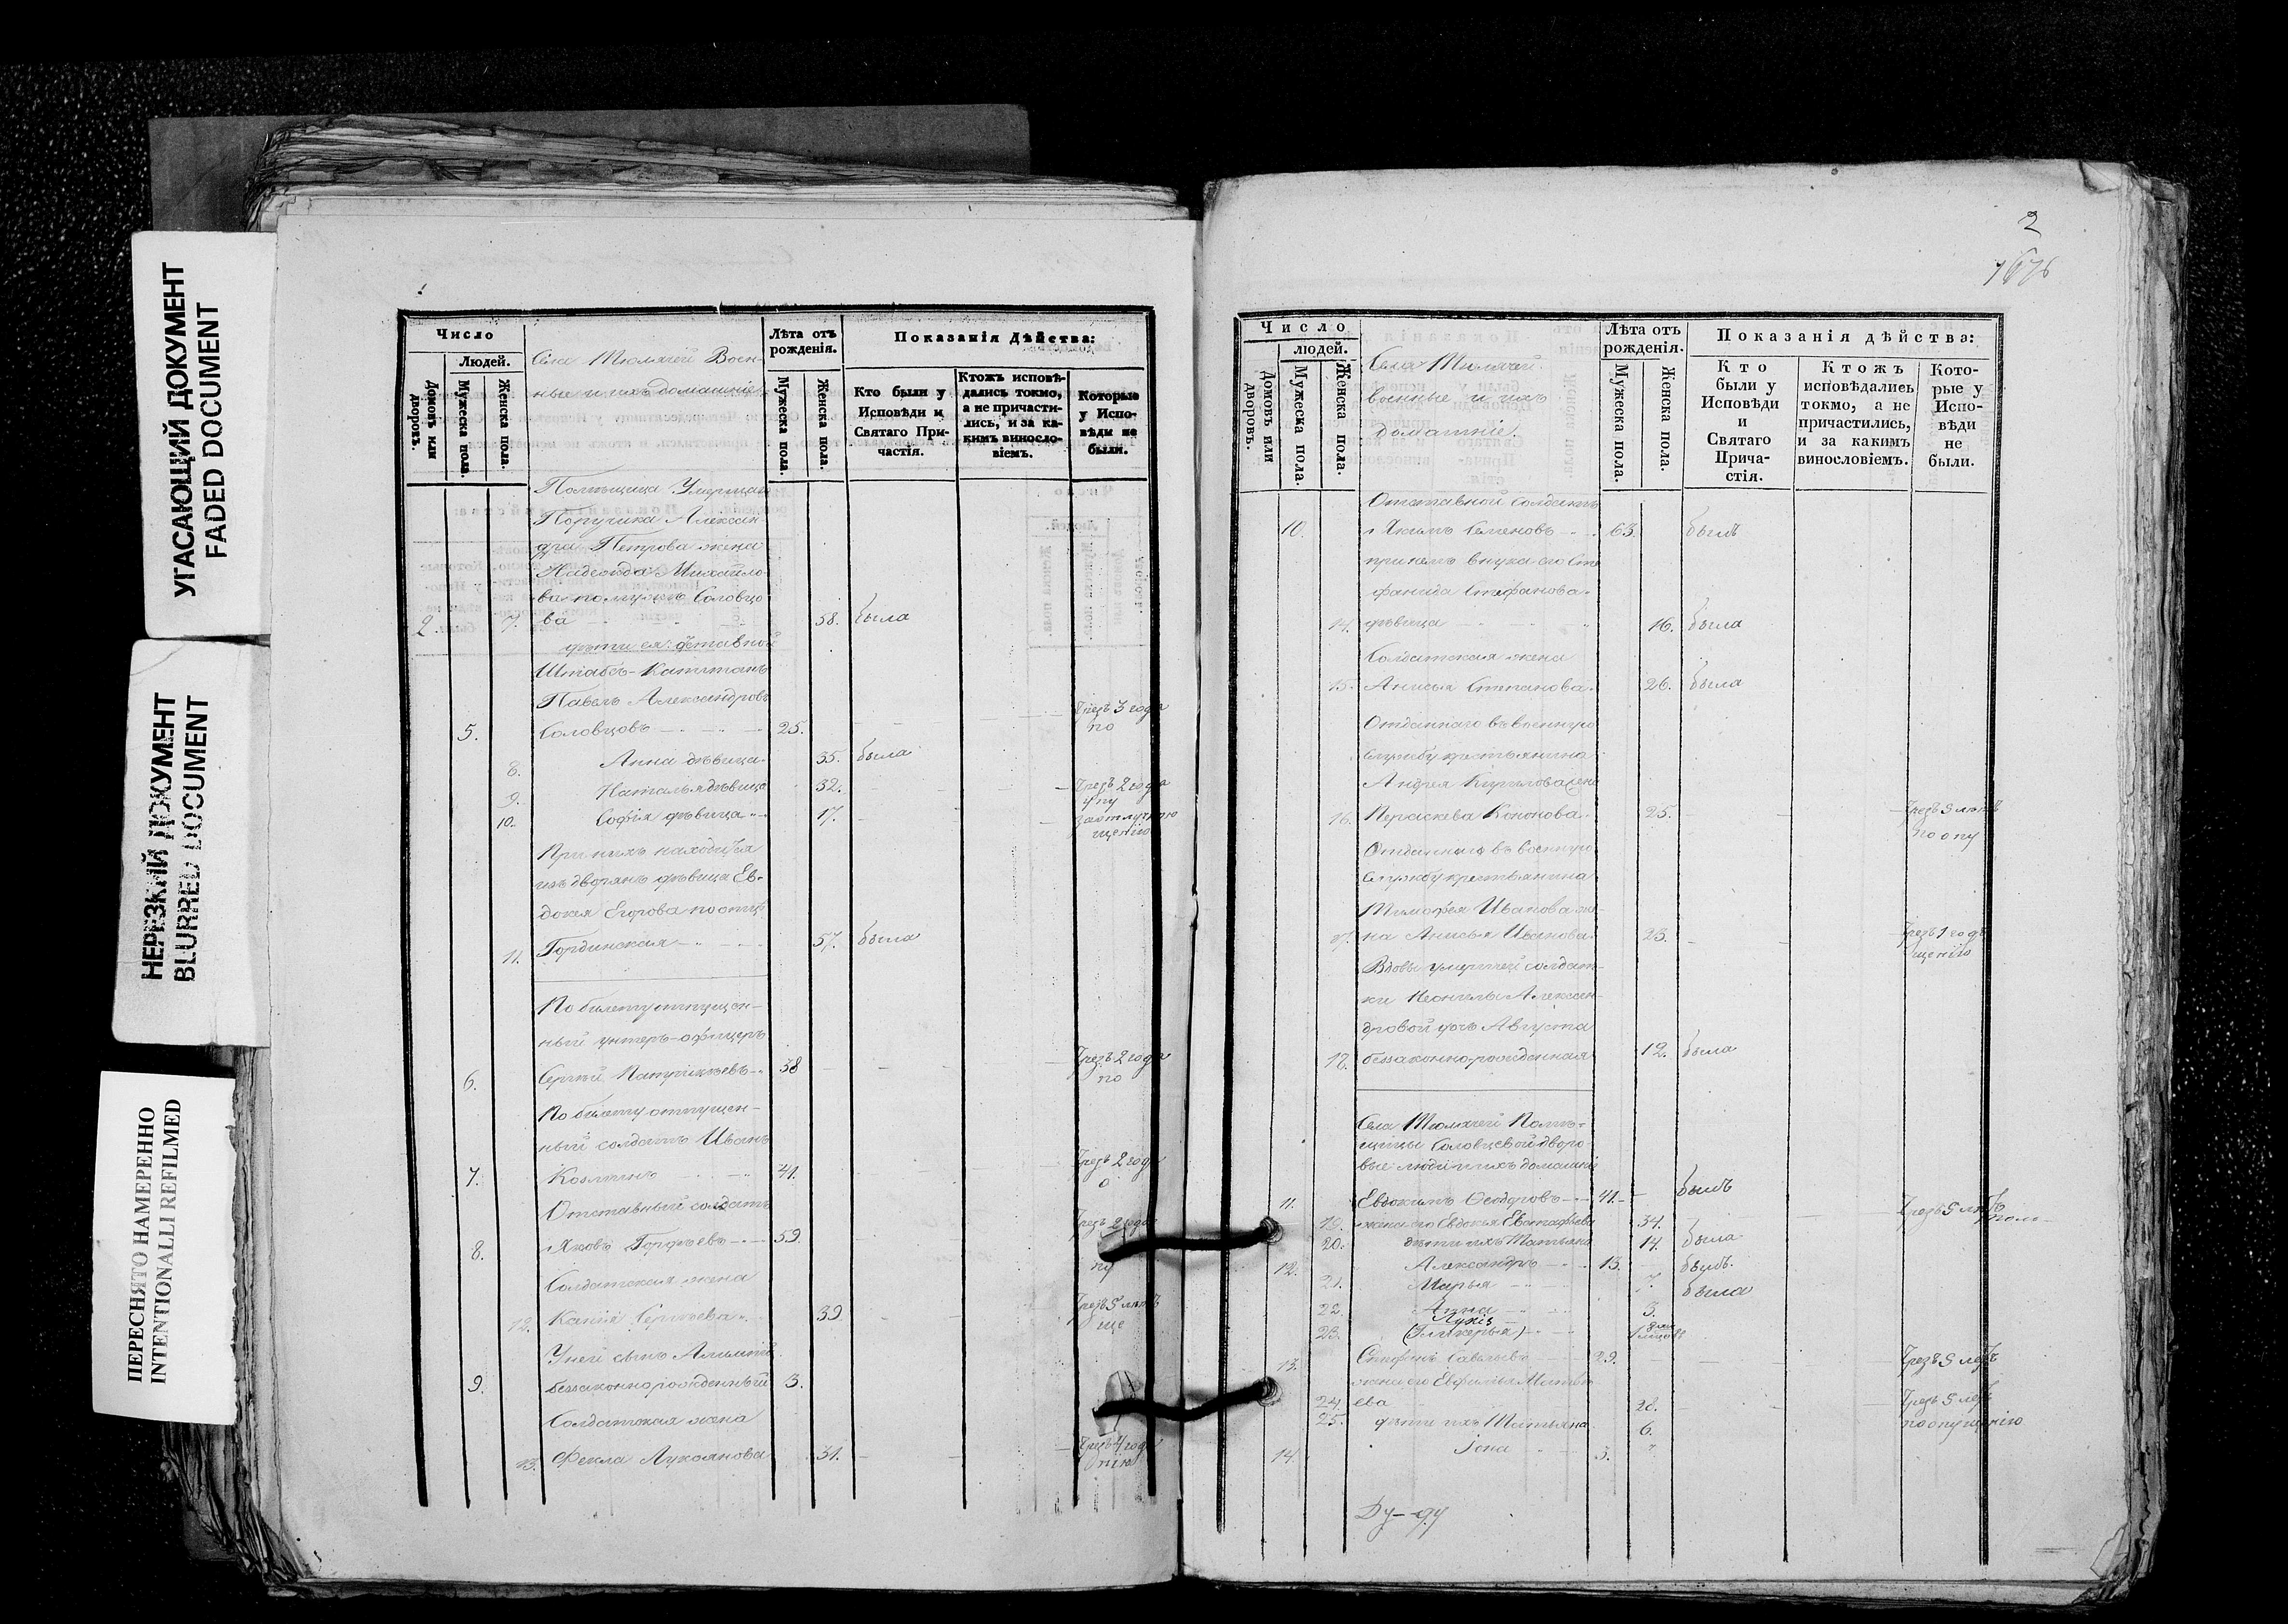 УГАСАЮЩИЙ ДОКУМЕНТ
FADED DOCUMENT
НЕРЕЗКИЙ ДОКУМЕНТ
BLURRED DOCUMENT
ПЕРЕСНЯТО НАМЕРЕННО
INTENTIONALLI REFILMED
Число
Людей.
Домовъ или дворовъ.
Мужеска пола.
Женска пола.
Села Тюлячей Воен-
ные и ихъ домашніе
Лѣта отъ
рожденія.
Мужеска пола.
Женска пола.
Показанія Дѣйства:
Кто были у
Исповѣди и
Святаго При-
частія.
Ктожъ исповѣ-
дались токмо,
а не причасти-
лись, и за ка-
кимъ винosло-
віемъ.
Которые
у Испо-
вѣди не
были.
Помѣщица Умершаго
Поручика Алексан-
дра Петрова жена
Надежда Михайло-
ва по мужѣ Соловцо
2. 7. ва 58. была
дѣти ея: отставной
Штабсъ-Капитанъ
Павелъ Александровъ
5. Соловцовъ 25. Чрезъ 3 года
по
8. Анна дѣвица 35. была
9. Наталья дѣвица 32. Чрезъ 2 года
10. Софія дѣвица 17.
При нихъ находится
изъ дворянъ дѣвица Ев-
докія Егорова по отцѣ
11. Гординская 57. была
По билету отпущен-
ный унтеръ-офицеръ
6. Сергѣй Патрикѣевъ 38 Чрезъ 2 года
по
По билету отпущен-
ный солдатъ Иванъ
7. 41. Чрезъ 2 года
о
Отставный солдатъ
8. Яковъ Гордѣевъ 59. Чрезъ 2 года
пу
Солдатская жена
12. Сергѣева 39 Чрезъ 5 лѣтъ
ще
У ней сынъ
9. беззаконнорожденный 3.
Солдатская жена
13. Фекла Лукоянова 31. Чрезъ 4 года
нію
2
Число
людей.
Домовъ или дворовъ.
Мужеска пола.
Женска пола.
Села Тюлячей
военные и ихъ
домашніе.
Лѣта отъ
рожденія.
Мужеска пола.
Женска пола.
Показанія дѣйства:
Кто
были у
Исповѣди
и
Святаго
Прича-
стія.
Ктожъ
исповѣдались
токмо, а не
причастились,
и за какимъ
винословіемъ.
Кото-
рые у
Испо-
вѣди
не
были.
Отставной солдатъ
10. Якимъ Семеновъ 63. былъ
при немъ внука его Сте
фанида Стефанова
14. дѣвица 16. была
Солдатская жена
15. Анисья Степанова 26. была
Отданнаго въ военную
службу крестьянина
Андрея Кирилова жена
16. Параскева Кононова 25. Чрезъ 5 лѣтъ
по опу
Отданнаго въ военную
службу крестьянина
Тимофея Иванова же
17. на Анисья Иванова 23. Чрезъ 1 годъ
щенію
Вдовы умершей солдат-
ки Неонилы Алексан-
дровой дочь Августа
18. беззаконно-рожденная 12. была
Села Тюлячей Помѣ-
щицы Соловцевой дворо
вые люди и ихъ домашніе
11. Евдокимъ Ѳеодоровъ 41. былъ
19. жена его Евдокья Евстафьева 34. Чрезъ 5 лѣтъ
20. дѣти ихъ Татьяна 14. была
12. Александръ 13. былъ.
21. Марья 7. была
22. Анна 3.
23. (Гликерья)
13. Стефанъ Савельевъ 29. Чрезъ 5 лѣтъ
жена его Евфимья Матвѣ
24. ева 28. Чрезъ 5 лѣтъ
25. дѣти ихъ Татьяна 6. по опущенію
14. Іона 3.
Ду-ду